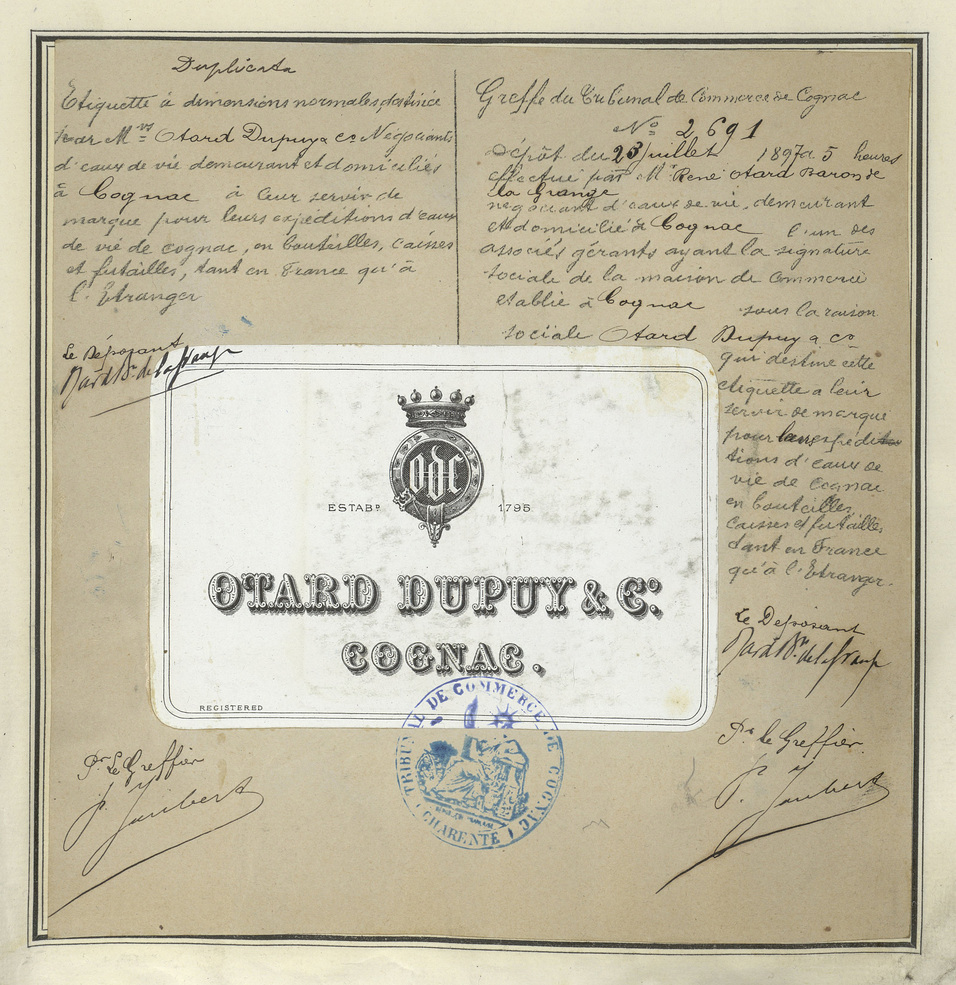 Duplicata
Etiquette à dimensions normales, destinée
par M.rs Otard Dupuy & Co Négociants
d'eaux de vie demeurant et domiciliés
à Cognac à leur servir de
marque pour leurs expéditions d'eaux
de vie de cognac, en bouteilles, caisses
et futailles, tant en France qu'à
l'Etranger
Le Déposant
Otard Bn. de la Grange
Greffe du Tribunal de Commerce de Cognac
No 2,691
Dépôt du 23 juillet 1897 à 5 heures
effectué par M. René Otard Baron de
la Grange
négociant d'eaux de vie, demeurant
et domicilié à Cognac l'un des
associés gérants ayant la signature
sociale de la maison de Commerce
etablie à Cognac sous la raison
sociale Otard Dupuy & Co
qui destine cette
etiquette a leur
servir de marque
pour leurs expédi
tions d'eaux de
vie de Cognac
en bouteilles,
caisses et futailles,
tant en France
qu'à l'Etranger.
Le Déposant
Otard Bn. de la Grange
ODC
ESTABD. 1795
OTARD DUPUY & Co.
COGNAC.
REGISTERED
TRIBUNAL DE COMMERCE DE COGNAC
CHARENTE
Pr. Le Greffier
P. Joubert
Pr. Le Greffier
P. Joubert